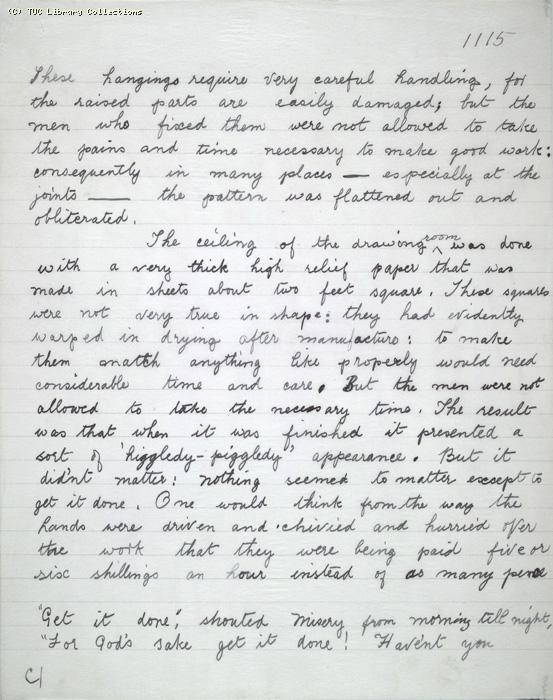 (C) TUC Library Collections
1115
These hangings require very careful handling, for
the raised parts are easily damaged; but the
men who fixed them were not allowed to take
the pains and time necessary to make good work:
consequently in many places — especially at the
joints — the pattern was flattened out and
obliterated.
The ceiling of the drawing room was done
with a very thick high relief paper that was
made in sheets about two feet square. These squares
were not very true in shape: they had evidently
warped in drying after manufacture: to make
them match anything like properly would need
considerable time and care. But the men were not
allowed to take the necessary time. The result
was that when it was finished it presented a
sort of 'higgledy-piggledy' appearance. But it
didn't matter: nothing seemed to matter except to
get it done. One would think from the way the
hands were driven and chivied and hurried over
the work that they were being paid five or
six shillings an hour instead of as many pence
"Get it done", shouted Misery from morning till night,
"For God's sake get it done! Haven't you
C/